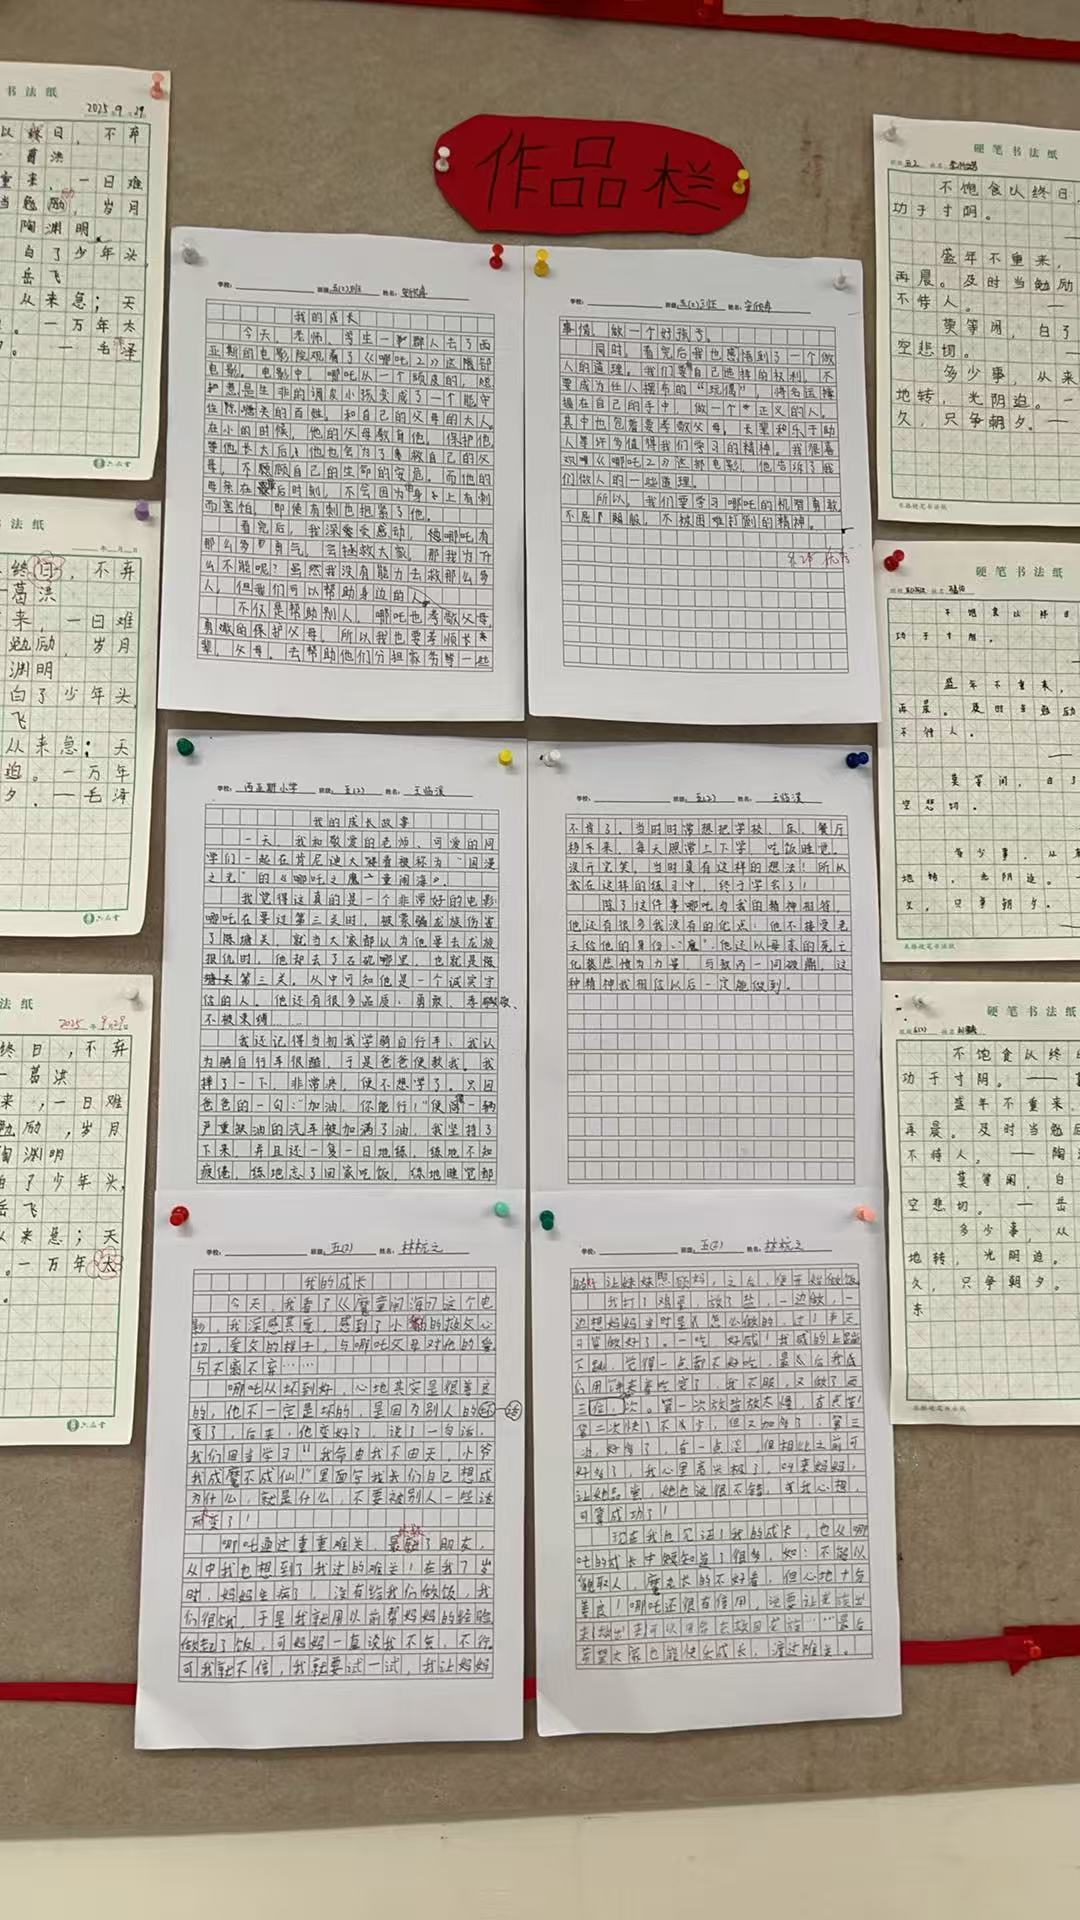 作品栏
书法纸
2025 9 29
以终日，不弃
葛洪
重来，一日难
当勉励，岁月
陶渊明
白了少年头，
岳飞
从来急；天
。一万年太
。一毛泽
六品堂
学校： 班级：五(2)班 姓名：
我的成长
今天，老师、学生一群人去了西
亚斯的电影院观看了《哪吒2》这部
电影。电影中，哪吒从一个顽皮的，
惹是生非的调皮小孩变成了一个能守
住陈塘关的百姓，和自己的父母的大人。
在小的时候，他的父母教育他，保护他，
等他长大后，他也会为了救自己的父
母，不顾自己的生命的安危。而他的
母亲在最后时刻，不会因为身上有刺
而害怕，即使有刺也把紧了他。
看完后，我深受感动，被哪吒有
那么多勇气，去拯救大家，那我为什
么不能呢？虽然我没有能力去救那么多
人，但我们可以帮助身边的人。
不仅是帮助别人，哪吒也孝敬父母，
勇敢的保护父母，所以我也要孝顺长
辈，父母。去帮助他们分担家务等一些
学校： 班级：五(2)班 姓名：
事情，做一个好孩子。
同时，看完后我也感悟到了一个做
人的道理。我们要有自己选择的权利，不
要成为任人摆布的“玩偶”，将名运操
控在自己的手中，做一个正义的人。
其中也包着要孝敬父母，长辈和乐于助
人等许多值得我们学习的精神。我很喜
欢观《哪吒2》这部电影，他告诉了我
们做人的一些道理。
所以，我们要学习哪吒的机智勇敢，
不屈服，不被困难打到的精神。
学校：西亚斯小学 班级：五(2) 姓名：王临溪
我的成长故事
一天，我和敬爱的老师、可爱的同
学们一起在肯尼迪大楼看被称为“国漫
之光”的《哪吒之魔童闹海》。
我觉得这真的是一个非常好的电影
哪吒在要过第三关时，被蒙骗龙族伤害
了陈塘关，就当大家都以为他要去龙族
报仇时，他却去了石矶哪里，也就是
第三关。从中可知他是一个诚实守
信的人。他还有很多品质：勇敢、孝敬、
不被束缚……
我还记得当初我学骑自行车，我认
为骑自行车很酷，于是爸爸便教我。我
摔了一下，非常疼，便不想学了。只因
爸爸的一句：“加油，你能行！”便像一辆
严重缺油的汽车被加满了油，我坚持了
下来，并且还一复一日地练，练地不知
疲倦，练地忘了回家吃饭，练地睡觉都
学校： 班级：五(2) 姓名：王临溪
不肯了。当时时常想把学校、床、餐厅
移下来，每天照常上下学，吃饭睡觉。
没开完笑，当时真有这样的想法！所以
我在这样的练习中，终于学会了！
除了这件事哪吒与我的精神相符，
他还有很多我没有的优点：他不接受老
天给他的身份“魔”，他还以母亲的死亡
化悲愤为力量，与敖丙一同破鼎，这
种精神我相信以后一定能做到。
学校： 班级：五(2) 姓名：林杭之
我的成长
今天，我看了《魔童闹海》这个电
影，我深感其受，感到了小的救父心
切，爱父的样子，与哪吒父母对他的爱
与不离不弃……
哪吒从坏到好，心地其实是很善良
的，他不一定是坏的，是因为别人的话
变了，后来，他变好了，说了一句话，
我们因当学习“我命由我不由天，小爷
我成魔不成仙！”里面写我长们自己想成
为什么，就是什么，不要被别人一些话
而变了！
哪吒通过重重难关，了朋友，
从中我也想到了我过的难关！在我7岁
时，妈妈生病了，没有给我们做饭，我
们很饿，于是我就用以前帮妈妈的经验
做起了饭，可妈妈一直说我不会，不行。
可我就不信，我就要试一试，我让妈妈
学校： 班级：五(2) 姓名：林杭之
让妹妹照顾妈，之后，便开始做饭
我打了鸡蛋，放了盐，一边做，一
边想妈妈当时是怎么做的，过了半天
可算做好了。一吃，好咸！我咸的上蹦
下跳，觉得一点都不好吃，最后我
们用饼夹着吃完了，我不服，又做了两
三次。第一次放盐放太慢，有点苦！
第二次快了不少，但又加多了，第三
次，好多了，有一点淡，但相比之前可
好多了，我心里高兴极了，叫来妈妈，
让她品尝，她也说很不错，我心想，
可算成功了！
现在我也见证了我的成长，也从哪
吒的成长中知道了很多，如：不能以
貌取人，魔丸长的不好看，但心地十分
善良！哪吒还很有信用，
希望大家也能快乐成长，渡过难关。
硬笔书法纸
班级 五2 姓名
不饱食以终日，
功于寸阴。
盛年不重来，
再晨。及时当勉励
不待人。
莫等闲，白了
空悲切。
多少事，从来
地转，光阴迫。一
久，只争朝夕。一
米格硬笔书法纸
书法纸
年 月 日
终日，不弃
一葛洪
来，一日难
勉励，岁月
渊明
白了少年头，
飞
从来急；天
迫。一万年
夕。一毛泽
六品堂
硬笔书法纸
不饱食以终日
功于寸阴。
盛年不重来，
再晨。及时当勉励
不待人。
莫等闲，白了
空悲切。
多少事，从来
地转，光阴迫。一
久，只争朝夕。
米格硬笔书法纸
法纸
2025 年 9月29日
终日，不弃
一葛洪
来，一日难
勉励，岁月
陶渊明
白了少年头，
岳飞
从来急；天
。一万年太
六品堂
硬笔书法纸
不饱食以终
功于寸阴。一葛
盛年不重来，
再晨。及时当勉励
不待人。一陶
莫等闲，白
空悲切。一岳
多少事，从
地转，光阴迫。
久，只争朝夕。
东
米格硬笔书法纸